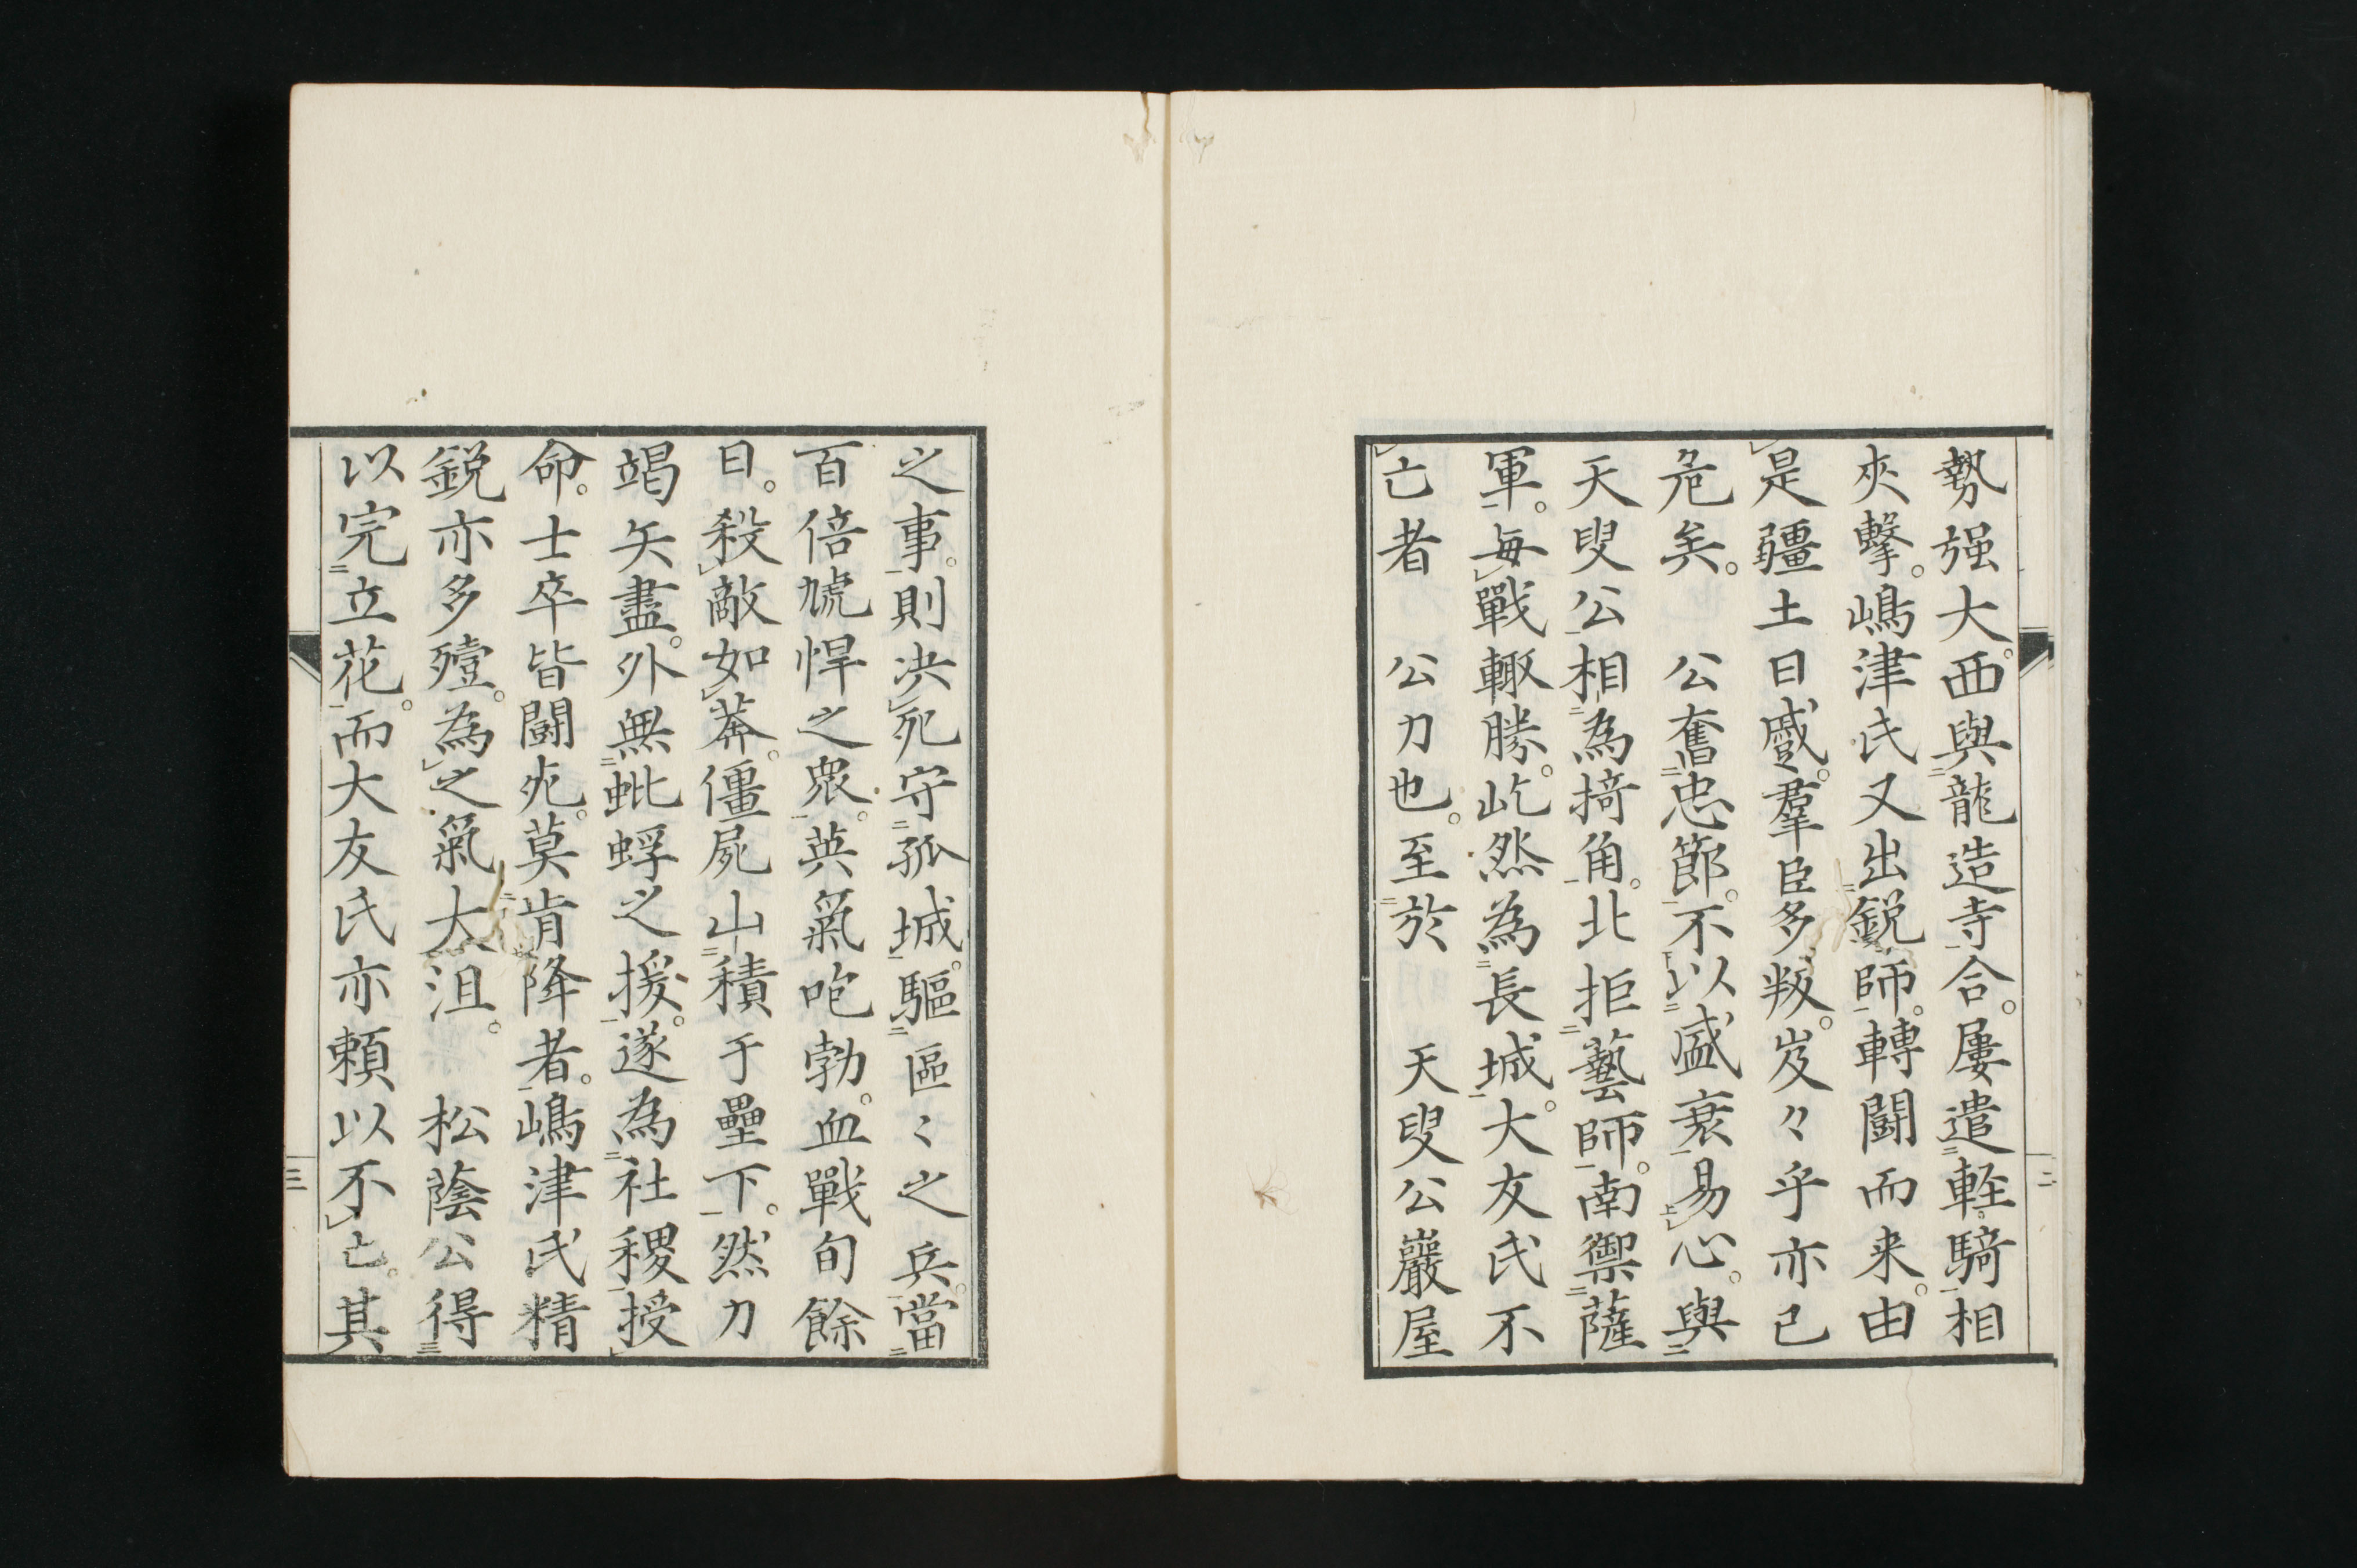 勢强大。西與龍造寺合。屢遣輕騎相
夾擊。嶋津氏又出銳師。轉鬪而来。由
是疆土日蹙。羣臣多叛。岌々乎亦已
危矣。　公奮忠節。不以盛衰易心。與
天叟公相為掎角。北拒藝師。南禦薩
軍。每戰輙勝。屹然為長城。大友氏不
亡者　公力也。至於　天叟公巖屋
二
之事。則決死守孤城。驅區〻之兵。當
百倍虓悍之衆。英氣咆勃。血戰旬餘
日。殺敵如莽。僵屍山積于壘下。然力
竭矢盡。外無蚍蜉之援。遂為社稷授
命。士卒皆鬪死。莫肯降者。嶋津氏精
銳亦多殪。為之氣大沮。　松蔭公得
以完立花。而大友氏亦賴以不亡。其
三